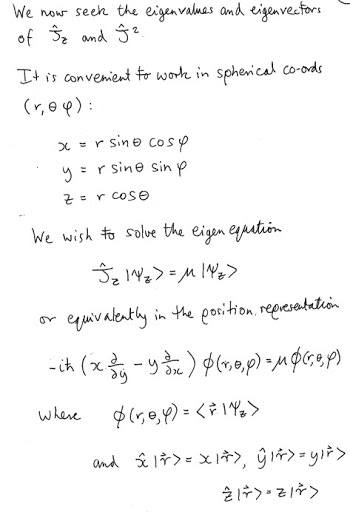 We now seek the eigenvalues and eigenvectors
of Ĵz and Ĵ².
It is convenient to work in spherical co-ords
(r, θ φ) :
x = r sinθ cosφ
y = r sinθ sinφ
z = r cosθ
We wish to solve the eigen equation
Ĵz |Ψz> = μ |Ψz>
or equivalently in the position representation
-iħ (x ∂/∂y - y ∂/∂x) ϕ(r,θ,φ) = μ ϕ(r,θ,φ)
where ϕ(r,θ,φ) = <r⃗ |Ψz>
and x̂ |r⃗> = x |r⃗>, ŷ |r⃗> = y |r⃗>
ẑ |r⃗> = z |r⃗>